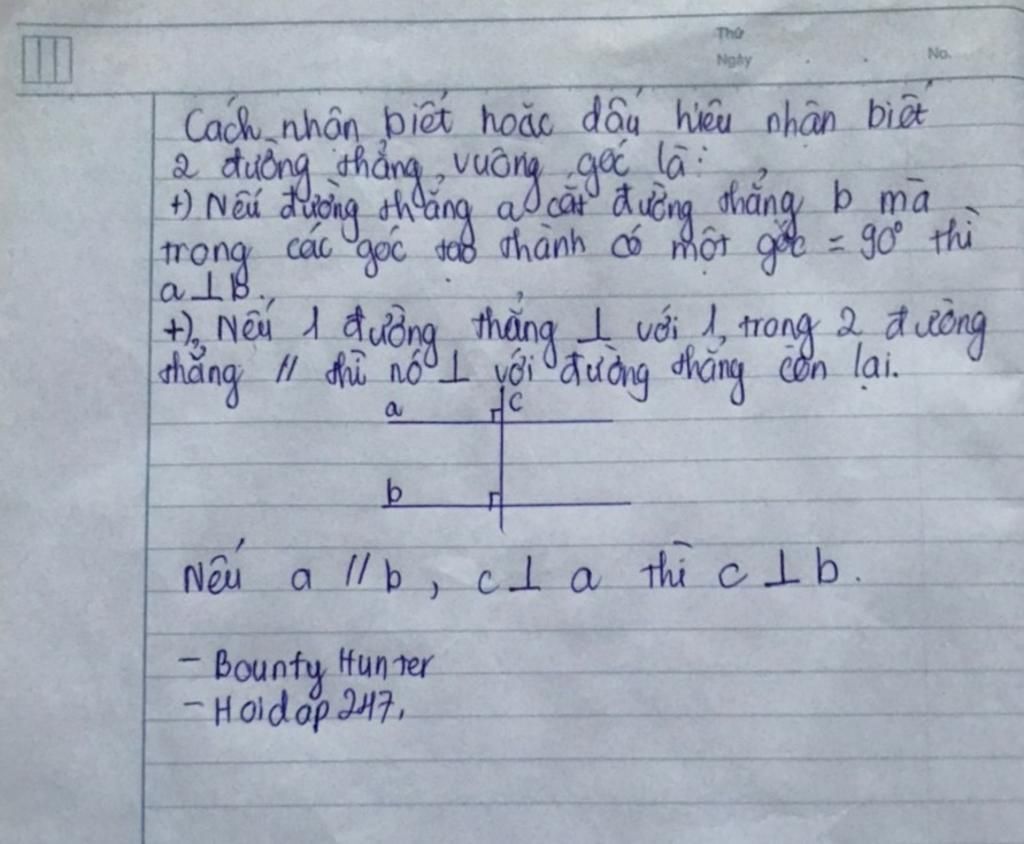 Thứ
Ngày
No.
Cách nhận biết hoặc dấu hiệu nhận biết
2 đường thẳng vuông góc là:
+) Nếu đường thẳng a cắt đường thẳng b mà
trong các góc tạo thành có một góc = 90° thì
a⊥B.
+) Nếu 1 đường thẳng ⊥ với 1 trong 2 đường
thẳng // thì nó ⊥ với đường thẳng còn lại.
a c
b
Nếu a // b, c⊥ a thì c ⊥ b.
- Bounty Hunter
- Hoidap 247.